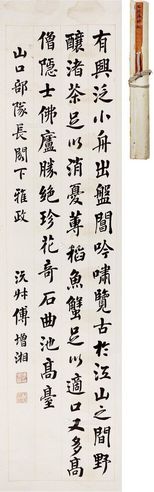 有興泛小舟出盤閶吟嘯覽古於江山之間野
釀渚茶足以消憂蓴稻魚蟹足以適口又多高
僧隱士佛廬勝絕珍花奇石曲池高臺
山口部隊長閣下雅政
沅叔傅增湘